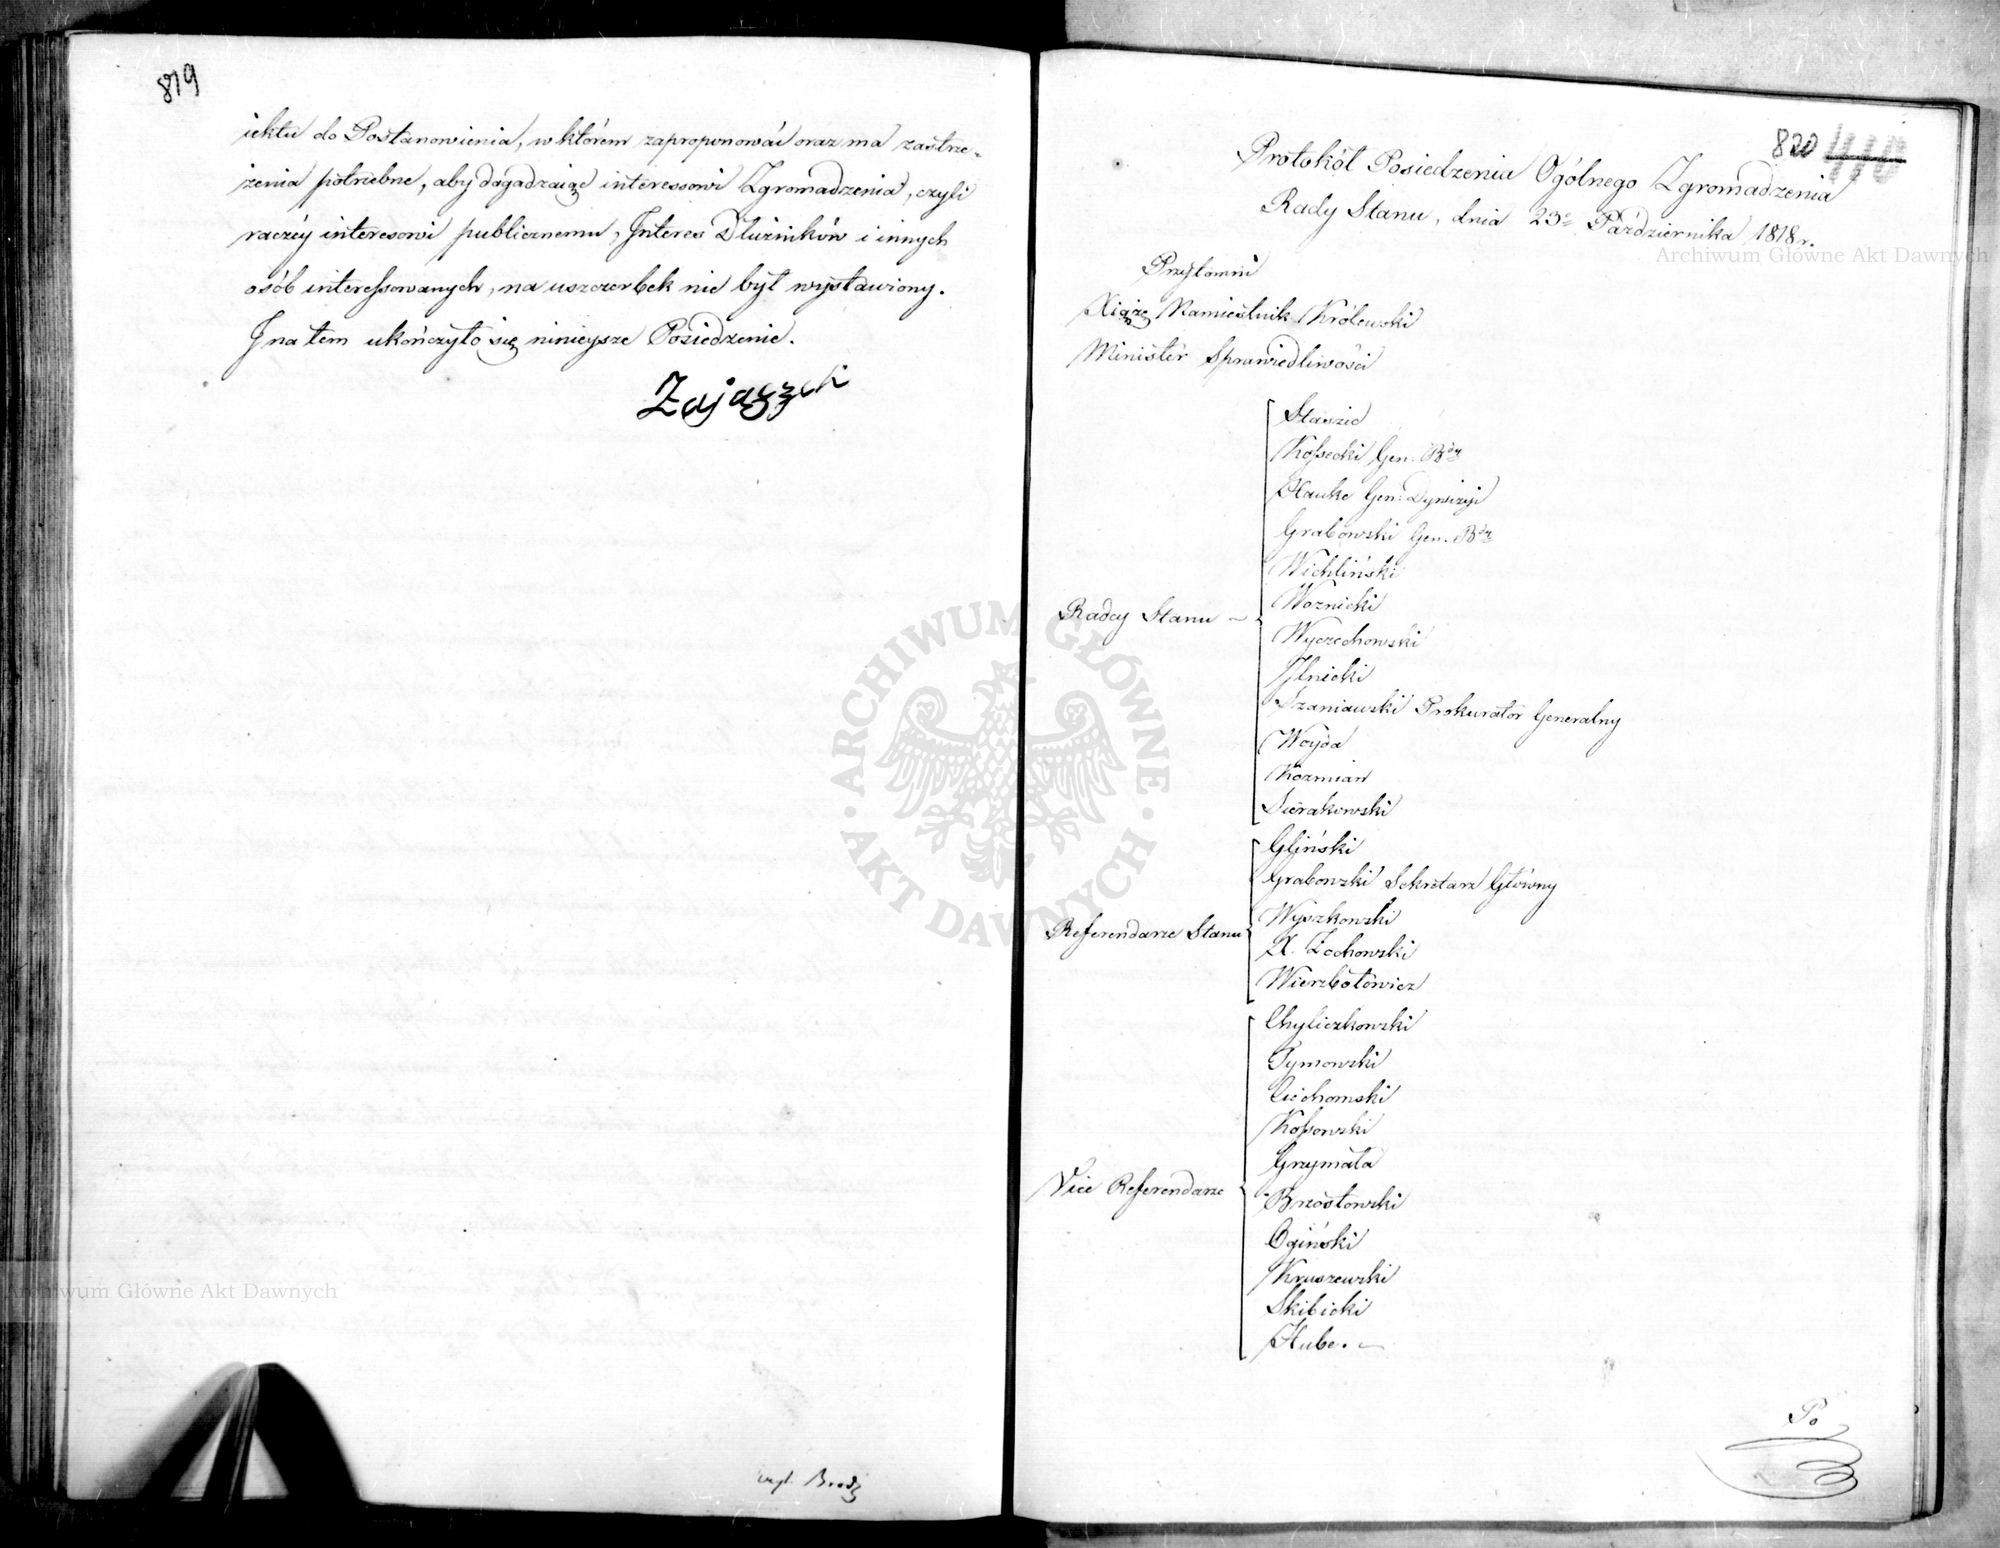 819
iektu do Postanowienia, w którém zaproponować oraz ma zastrze-
żenia potrzebne, aby dogadzaiąc interessowi Zgromadzenia, czyli
raczéy interesowi publicznemu, Jnteres Dłużników i innych
osób interessowanych, na uszczerbek nie był wystawiony.
J na tem ukończyło się ninieysze Posiedzenie.
Zajączek
820 410
Protokół Posiedzenia Ogólnego Zgromadzenia
Rady Stanu, dnia 23º Października 1818 r.
Przytomni
Xiążę Namiestnik Królewski
Minister Sprawiedliwości
Radcy Stanu
Staszic
Kossecki Gen. Bdy
Hauke Gen: Dywizyi
Grabowski Gen. Bdy
Wichliński
Woznicki
Wyczechowski
Jlnicki
Szaniawski Prokurator Generalny
Woyda
Kozmian
Sierakowski
Referendarze Stanu
Gliński
Grabowski Sekretarz Główny
Wyszkowski
X. Żochowski
Wierzbołowicz
Vice Referendarze
Chyliczkowski
Tymowski
Ciechomski
Kossowski
Grzymała
Brzostowski
Ogiński
Kruszewski
Skibicki
Hube.
Po
ARCHIWUM GŁÓWNE AKT DAWNYCH
Archiwum Główne Akt Dawnych
Archiwum Główne Akt Dawnych